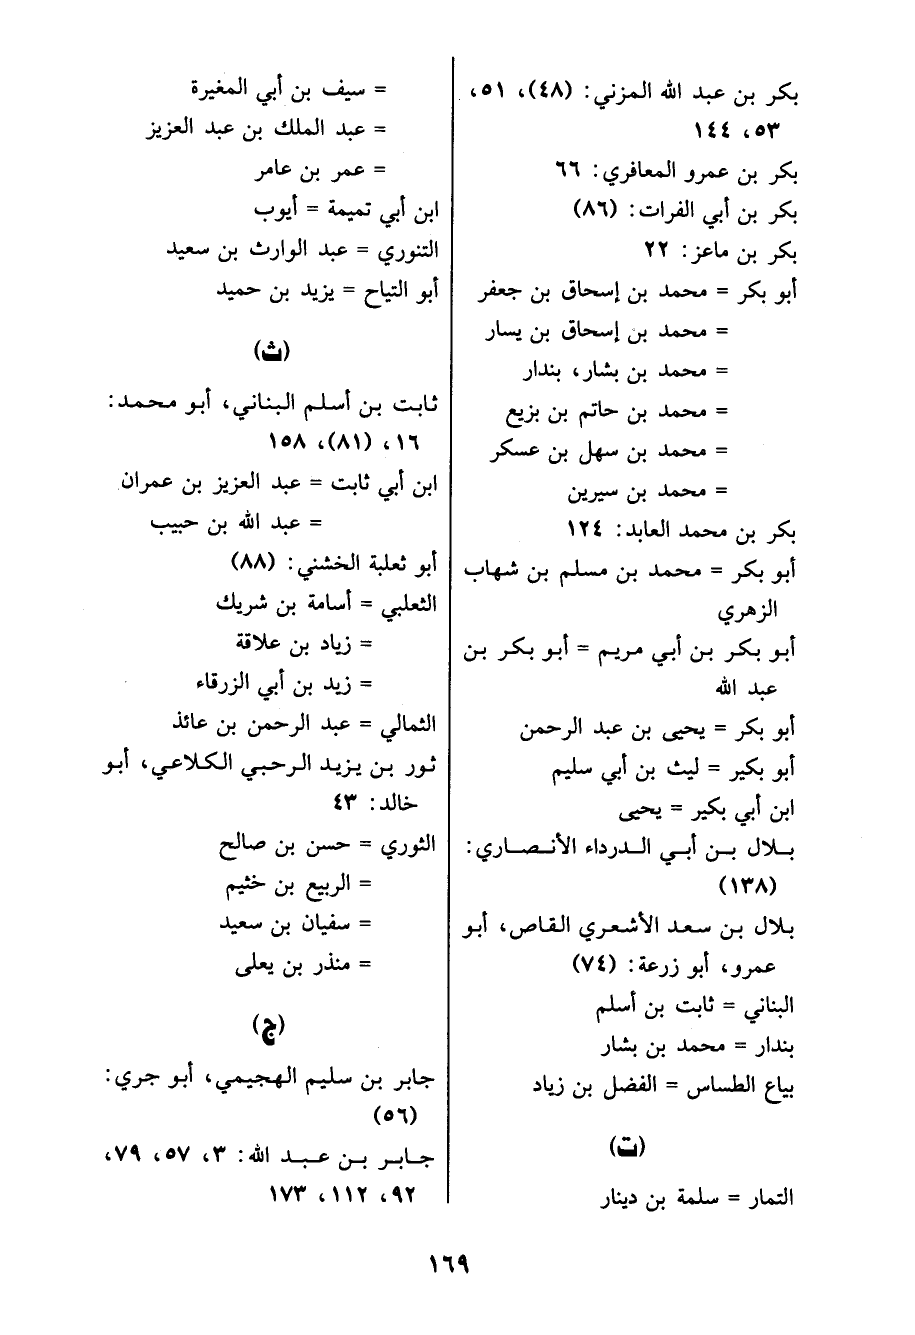 بكر بن عبد الله المزني: (٤٨)، ٥١،
٥٣، ١٤٤
بكر بن عمرو المعافري: ٦٦
بكر بن أبي الفرات: (٨٦)
بكر بن ماعز: ٢٢
أبو بكر = محمد بن إسحاق بن جعفر
= محمد بن إسحاق بن يسار
= محمد بن بشار، بندار
= محمد بن حاتم بن بزيع
= محمد بن سهل بن عسكر
= محمد بن سيرين
بكر بن محمد العابد: ١٢٤
أبو بكر = محمد بن مسلم بن شهاب
الزهري
أبو بكر بن أبي مريم = أبو بكر بن
عبد الله
أبو بكر = يحيى بن عبد الرحمن
أبو بكير = ليث بن أبي سليم
ابن أبي بكير = يحيى
بلال بن أبي الدرداء الأنصاري:
(١٣٨)
بلال بن سعد الأشعري القاص، أبو
عمرو، أبو زرعة: (٧٤)
البناني = ثابت بن أسلم
بندار = محمد بن بشار
بياع الطساس = الفضل بن زياد
(ت)
التمار = سلمة بن دينار
= سيف بن أبي المغيرة
= عبد الملك بن عبد العزيز
= عمر بن عامر
ابن أبي تميمة = أيوب
التنوري = عبد الوارث بن سعيد
أبو التياح = يزيد بن حميد
(ث)
ثابت بن أسلم البناني، أبو محمد:
١٦، (٨١)، ١٥٨
ابن أبي ثابت = عبد العزيز بن عمران
= عبد الله بن حبيب
أبو ثعلبة الخشني: (٨٨)
الثعلبي = أسامة بن شريك
= زياد بن علاقة
= زيد بن أبي الزرقاء
الثمالي = عبد الرحمن بن عائذ
ثور بن يزيد الرحبي الكلاعي، أبو
خالد: ٤٣
الثوري = حسن بن صالح
= الربيع بن خثيم
= سفيان بن سعيد
= منذر بن يعلى
(ج)
جابر بن سليم الهجيمي، أبو جري:
(٥٦)
جابر بن عبد الله: ٣، ٥٧، ٧٩،
٩٢، ١١٢، ١٧٣
١٦٩